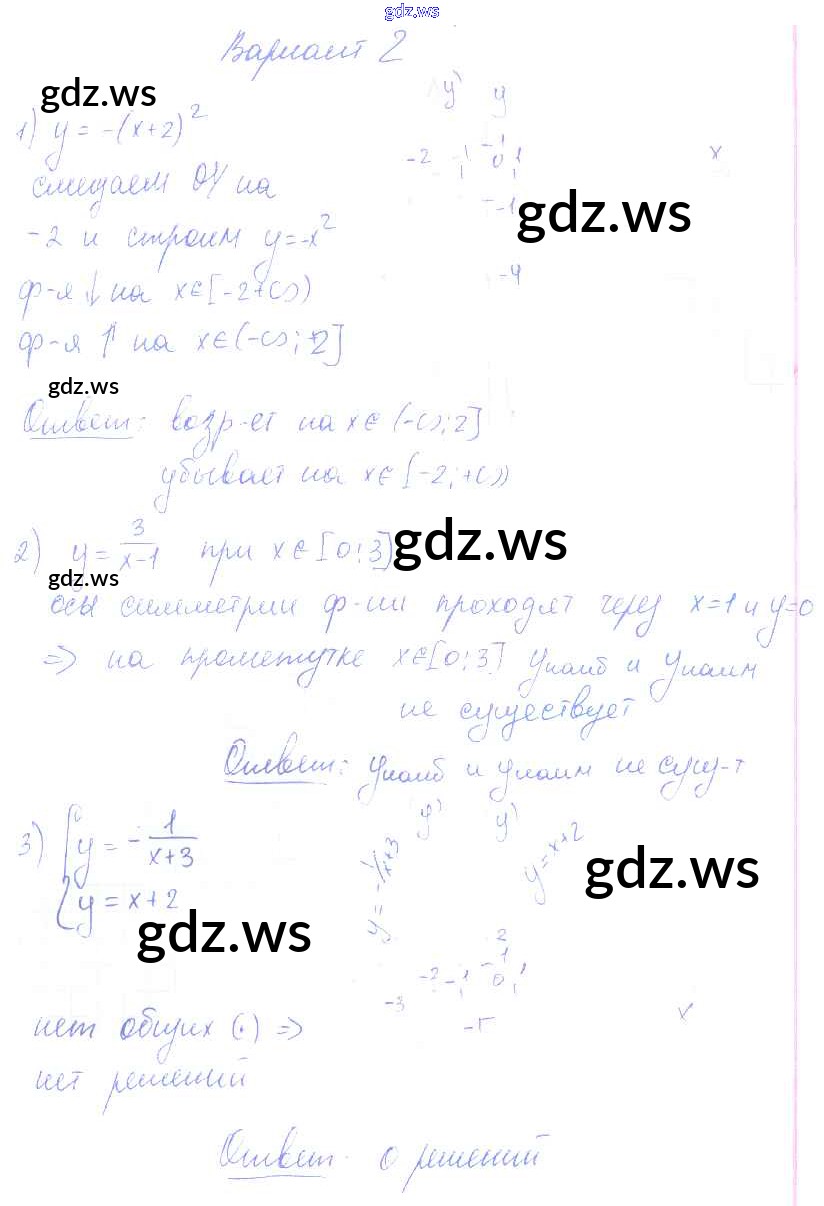 gdz.ws
Вариант 2
gdz.ws
1) y = -(x+2)²
y' y
-2 -1 -1 0 1 x
смещаем OY на
-1
gdz.ws
-2 и строим y=-x²
-4
ф-я ↓ на x∈[-2+∞)
ф-я ↑ на x∈(-∞;-2]
gdz.ws
Ответ: возр-ет на x∈(-∞;2]
убывает на x∈[-2;+∞)
2) y = 3/(x-1) при x∈[0;3]
gdz.ws
gdz.ws
осы симметрии ф-ии проходят через x=1 и y=0
=> на прометутке x∈[0;3] yнаиб и yнаим
не существует
Ответ: yнаиб и yнаим не сущ-т
3) { y = - 1/(x+3)
y = x+2
y' y'
y = -1/x+3
y=x+2
gdz.ws
gdz.ws
2
-3 -2 -1 -1 0 1
-1
нет общих (·) =>
нет решений
Ответ. 0 решений